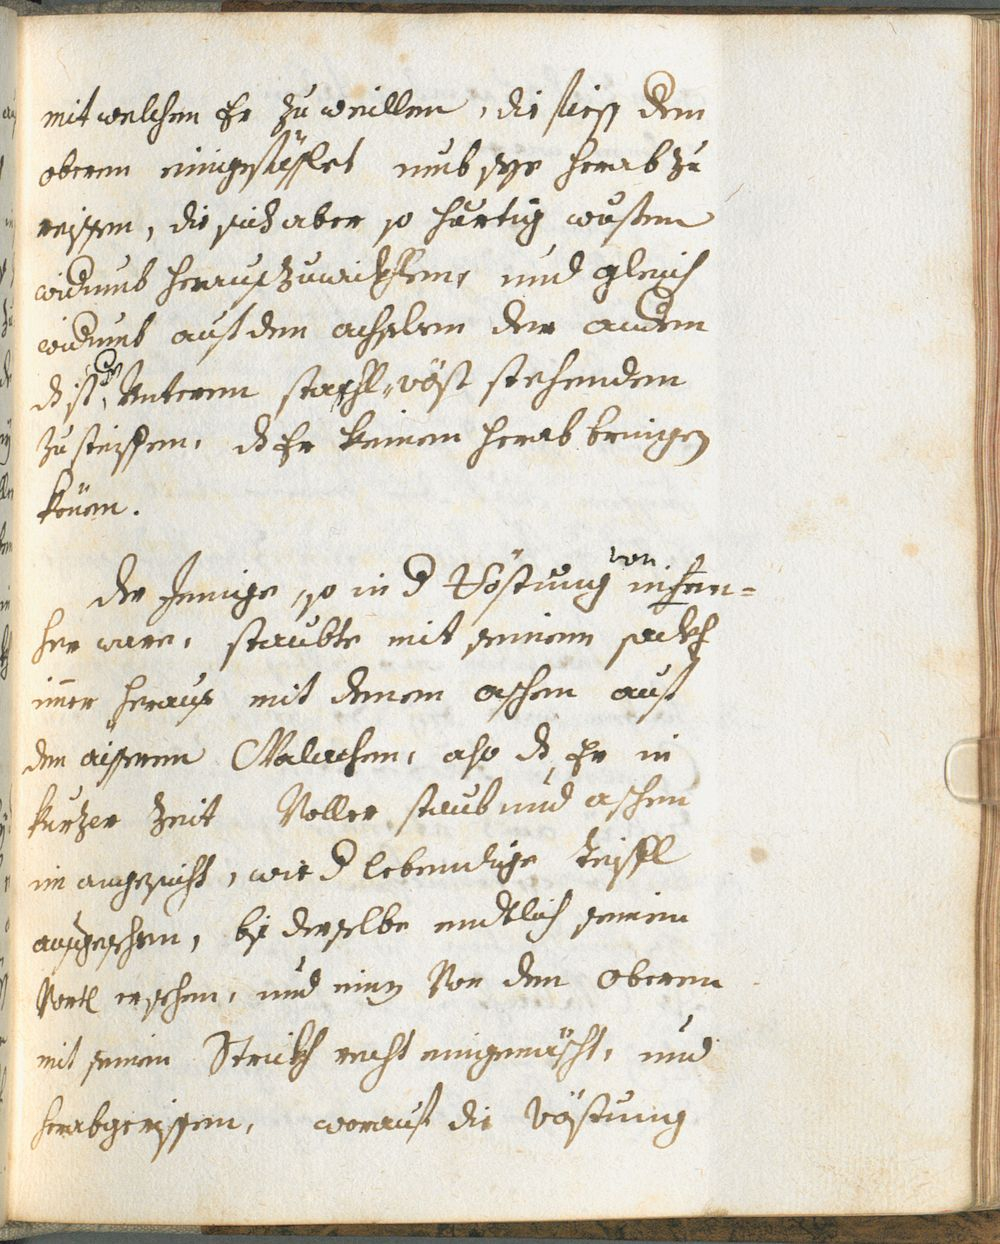 mit welchen Er zu weillen, die füess dem
oberen eingefässlet umb sye herab zu
reissen, die sich aber so hurtig wusten
widumb herauszuwickhlen, und gleich
widumb auf den achslen der andern
d ist, unteren stockh-vöst stehenden
zu steiffen, dz Er keinen herab bringen
könen.
Der Jenige, so in d Vöstung von in herein-
her ware, staubte mit seinem sackh
imer heraus mit denen aschen auf
den aisseren Walachen, also dz Er in
kurzer Zeit Voller staub und aschen
im angesicht, wie d lebendige Teiffl
ausgesehen, bis derselbe endtlich seinen
Vortl ersehen, und einen Von den oberen
mit seinen Strickh recht eingemäscht, und
herabgerissen, worauf die Vöstung